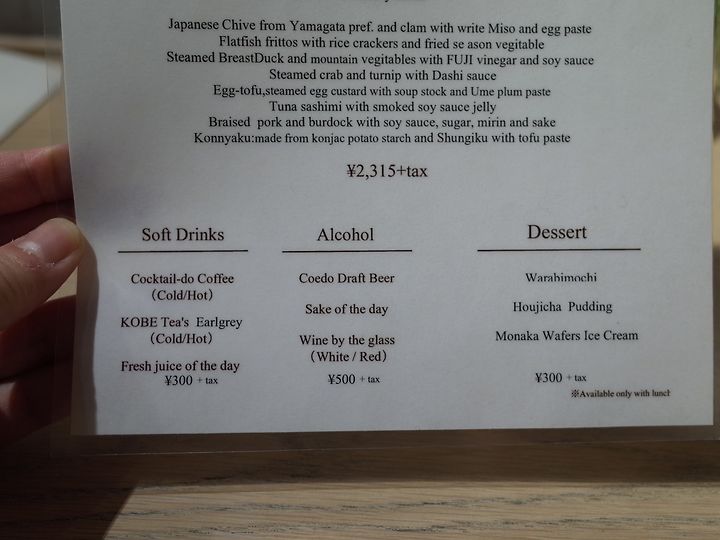 Japanese Chive from Yamagata pref. and clam with write Miso and egg paste
Flatfish frittos with rice crackers and fried se ason vegitable
Steamed BreastDuck and mountain vegitables with FUJI vinegar and soy sauce
Steamed crab and turnip with Dashi sauce
Egg-tofu,steamed egg custard with soup stock and Ume plum paste
Tuna sashimi with smoked soy sauce jelly
Braised pork and burdock with soy sauce, sugar, mirin and sake
Konnyaku:made from konjac potato starch and Shungiku with tofu paste
¥2,315+tax
Soft Drinks
Cocktail-do Coffee
（Cold/Hot）
KOBE Tea's Earlgrey
（Cold/Hot）
Fresh juice of the day
¥300 + tax
Alcohol
Coedo Draft Beer
Sake of the day
Wine by the glass
（White / Red）
¥500 + tax
Dessert
Warabimochi
Houjicha Pudding
Monaka Wafers Ice Cream
¥300 + tax
※Available only with lunch